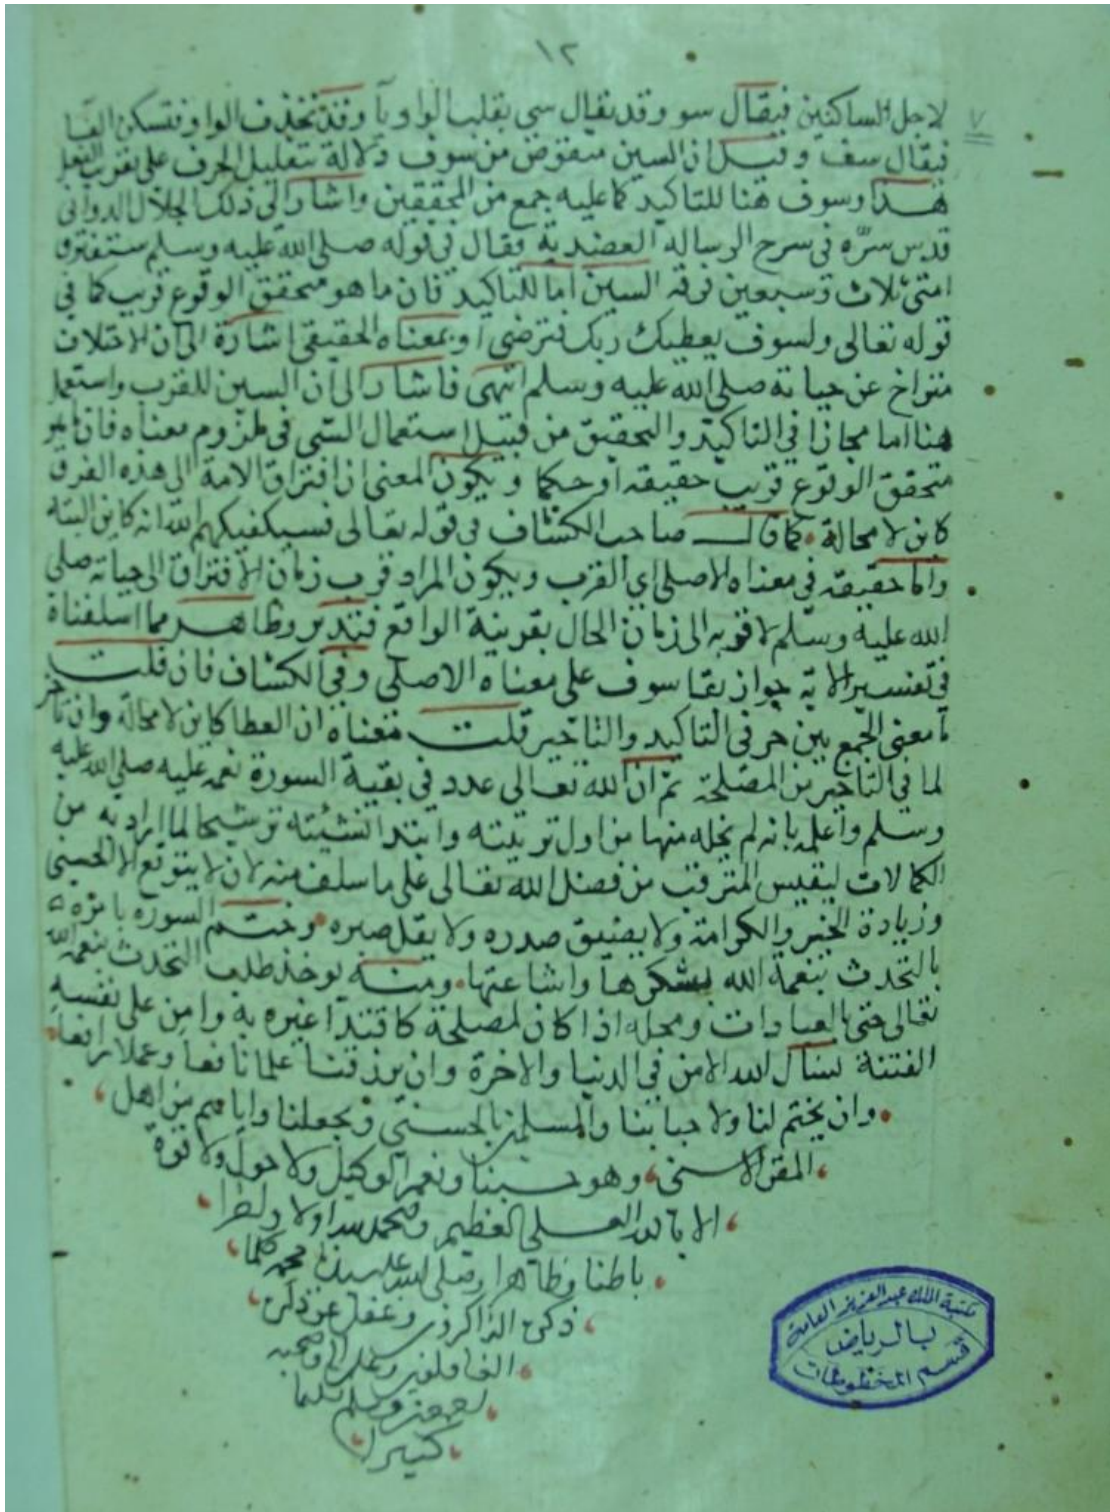 ١٢
٧
لاجل الساكنين فيقال سو وقد يقال سى بقلب الواو يآ وقد تحذف الواو فتسكن الفآ
فيقال سف وقيل ان السين منقوص من سوف دلالة بتقليل الحرف على تقريب الفعل
هذا وسوف هنا للتاكيد كما عليه جمع من المحققين واشار الى ذلك الجلال الدوانى
قدس سره في شرح الرسالة العضدية فقال في قوله صلى الله عليه وسلم ستفترق
امتى ثلاث وسبعين فرقة السين اما للتاكيد فان ما هو متحقق الوقوع قريب كما في
قوله تعالى ولسوف يعطيك ربك فترضى او بمعناه الحقيقى اشارة الى ان الاختلاف
متراخ عن حياته صلى الله عليه وسلم انتهى فاشار الى ان السين للقرب واستعمل
هنا اما مجازا في التاكيد والتحقيق من قبيل استعمال الشى في ملزوم معناه فان ما هو
متحقق الوقوع قريب حقيقة او حكما ويكون المعنى ان افتراق الامة الى هذه الفرق
كاين لا محالة كما قال صاحب الكشاف في قوله تعالى فسيكفيكهم الله انه كاين البتة
واما حقيقة في معناه الاصلى اي القرب ويكون المراد قرب زمان الافتراق الى حياته صلى
الله عليه وسلم لا قربه الى زمان الحال بقرينة الواقع فتدبر وظاهر مما اسلفناه
في تفسير الاية جواز بقا سوف على معناه الاصلى وفي الكشاف فان قلت
ما معنى الجمع بين حرفي التاكيد والتاخير قلت معناه ان العطا كاين لا محالة وان تاخر
لما في التاخير من المصلحة ثم ان الله تعالى عدد في بقية السورة نعمه عليه صلى الله عليه
وسلم واعلمه بانه لم يخله منها من اول تربيته وابتدا نشئته ترشيحا لما اراد به من
الكمالات ليقيس المترقب من فضل الله تعالى على ما سلف منه لان لا يتوقع الا الحسنى
وزيادة الخير والكرامة ولا يضيق صدره ولا يقل صبره وختم السورة بامره
بالتحدث بنعمة الله بشكرها واشاعتها ومنه يوخذ طلب التحدث بنعمة الله
تعالى حتى بالعبادات ومحله اذا كان لمصلحة كاقتدا غيره به وامن على نفسه
الفتنة نسال الله الامن في الدنيا والاخرة وان يرزقنا علما نافعا وعملا رافعا
وان يختم لنا ولاحبابنا والمسلمين بالحسنى ويجعلنا واياهم من اهل
المقر الاسنى وهو حسبنا ونعم الوكيل ولا حول ولا قوة
الا بالله العلى العظيم والحمد لله اولا واخرا
باطنا وظاهرا وصلى الله على سيدنا محمد كلما
ذكره الذاكرون وغفل عن ذكره
الغافلون وعلى اله وصحبه
اجمعين وسلم تسليما
كثيرا
مكتبة الملك عبد العزيز العامة
بالرياض
قسم المخطوطات